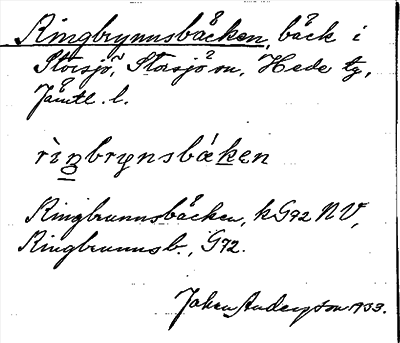 Ringbrynnsbäcken, bäck i
Storsjö, Storsjö sn, Hede tg,
Jämtl. l.
rìŋbrynsbáken
Ringbrunnsbäcken, kG92 NV,
Ringbrunnsb., G72.
Johan Anderson 1933.